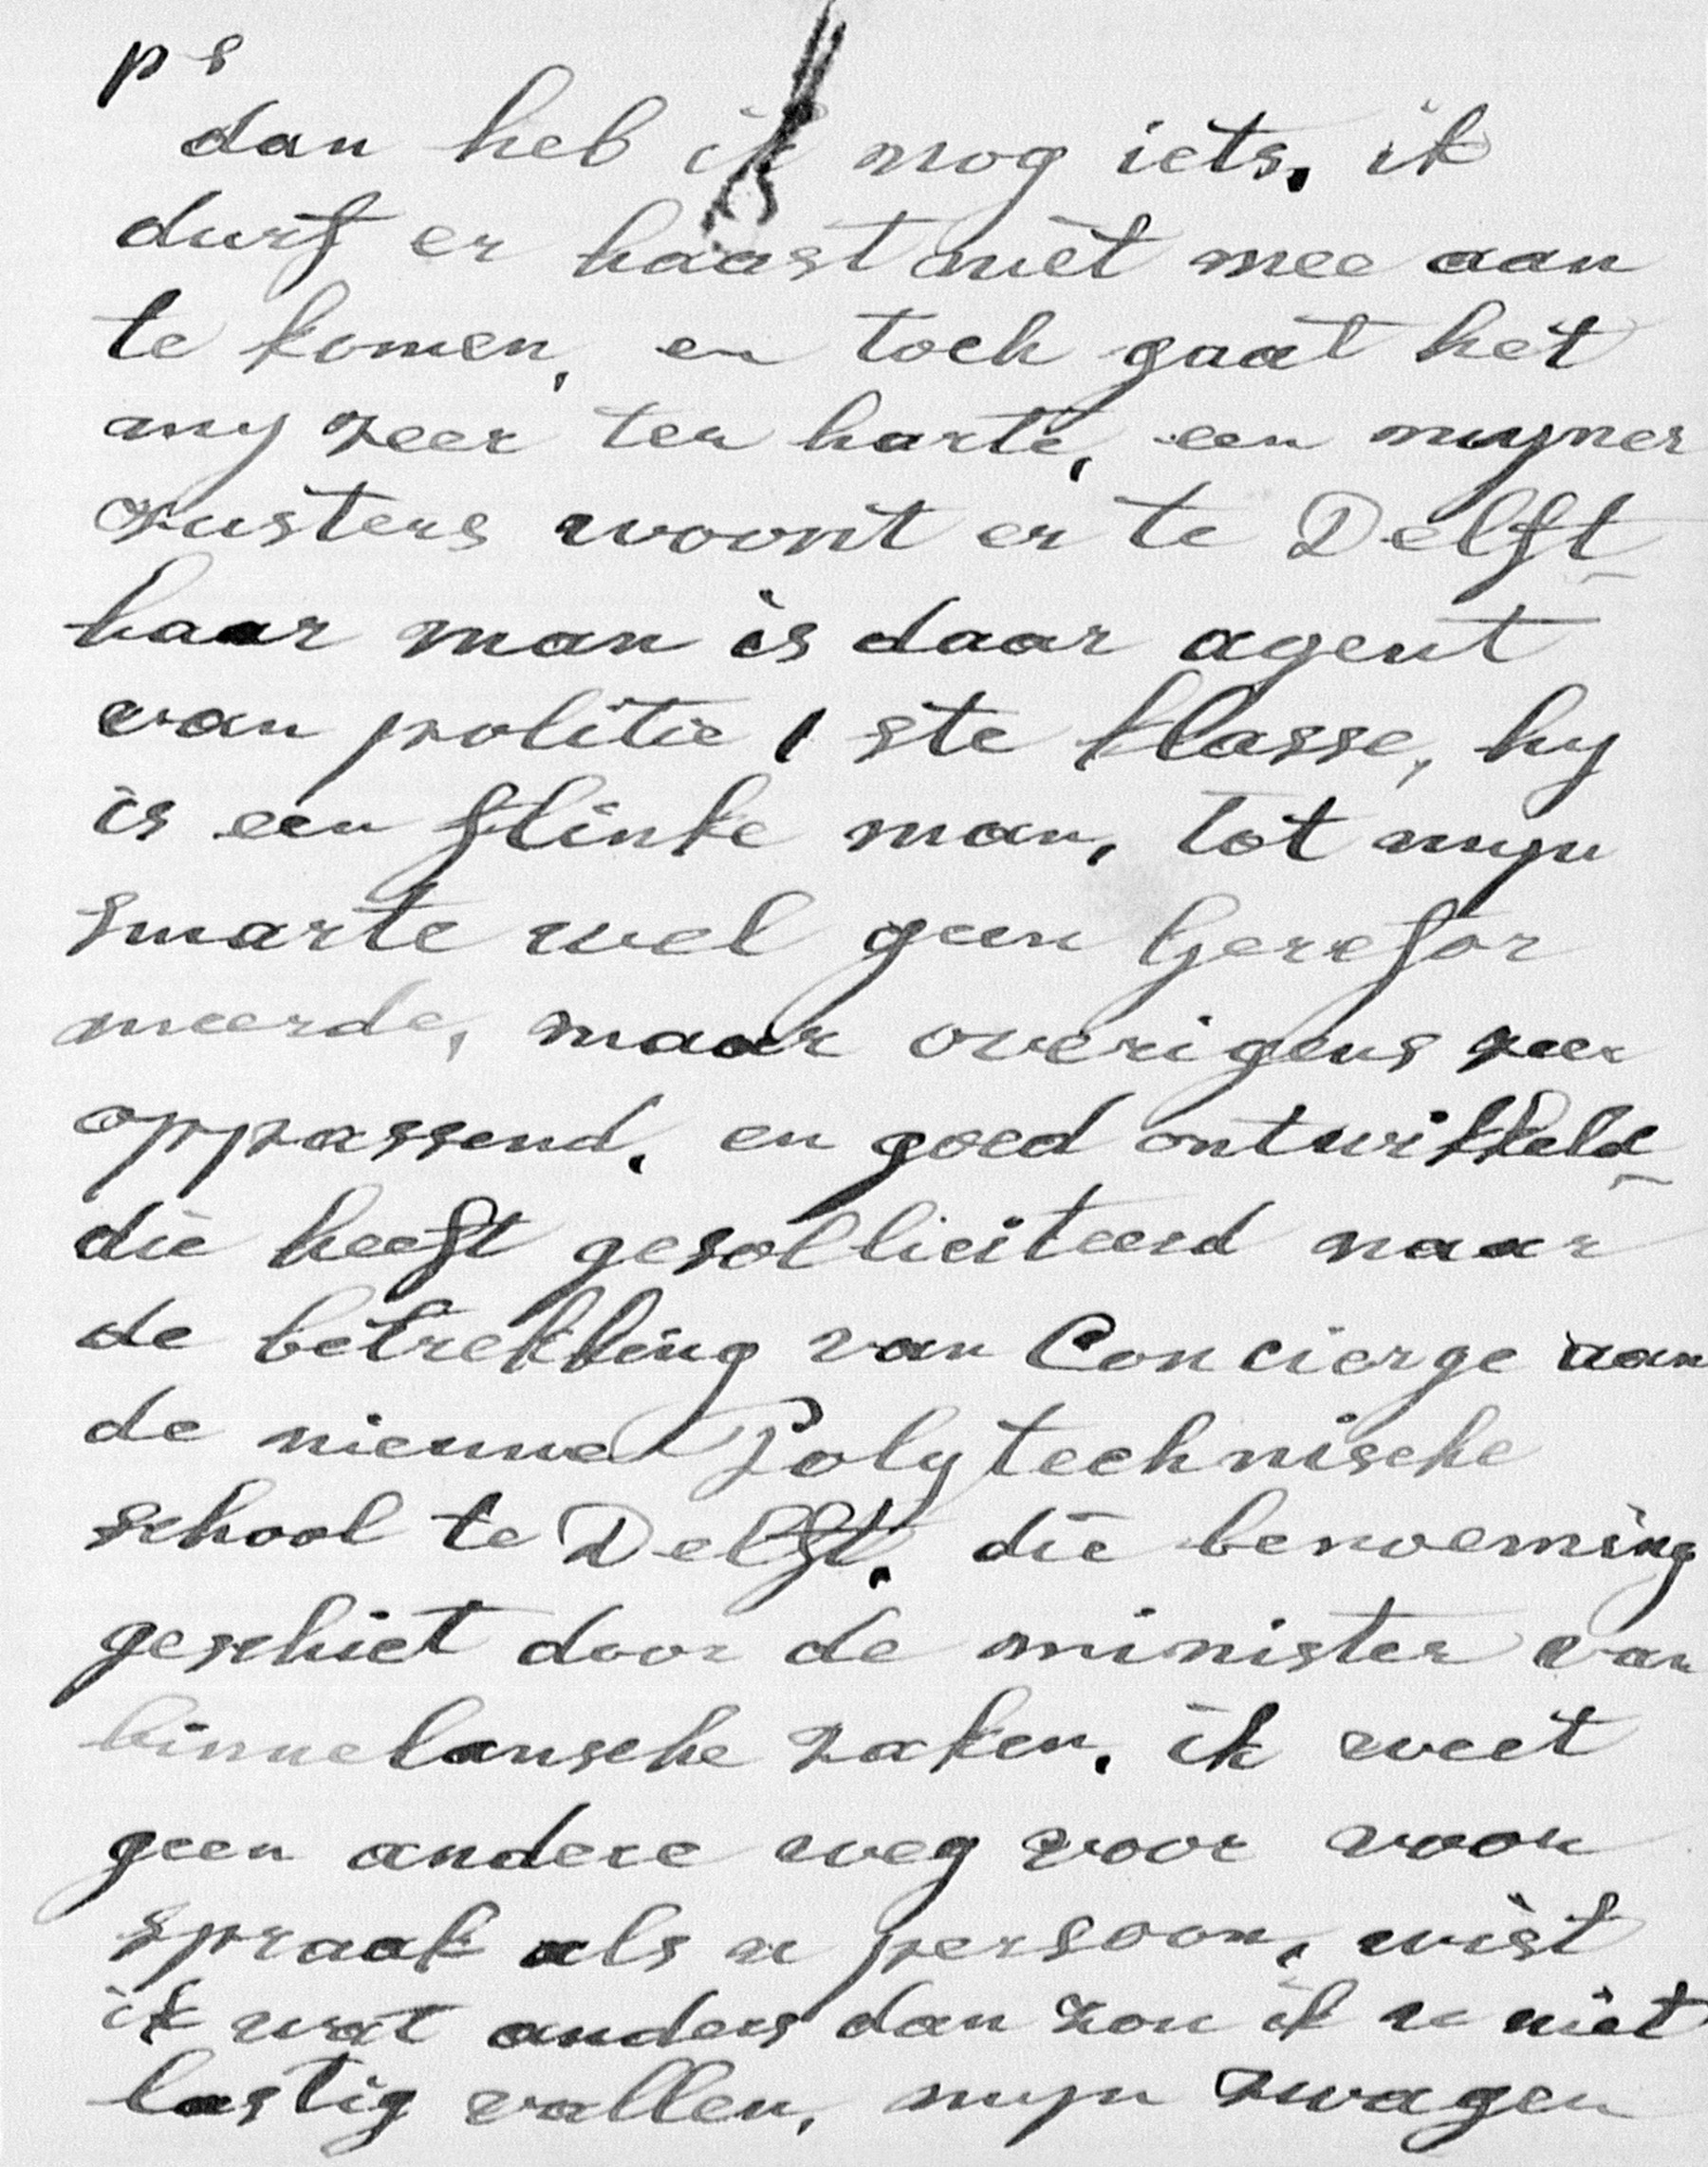 ps
dan heb ik nog iets. ik
durf er haast niet mee aan
te komen, en toch gaat het
my zeer ter harte, een myner
zusters woont er te Delft
haar man is daar agent
van politie 1 ste klasse, hy
is een flinke man, tot myn
smarte wel geen Gerefor
meerde, maar overigens zeer
oppassend. en goed ontwikkeld
die heeft gesolliciteerd naar
de betrekking van Concierge aan
de nieuwe Polytechnische
school te Delft. die benoeming
geschiet door de minister van
binnelansche zaken. ik weet
geen andere weg voor voor
spraak als u persoon, wist
ik wat anders dan zou ik u niet
lastig vallen, myn zwager